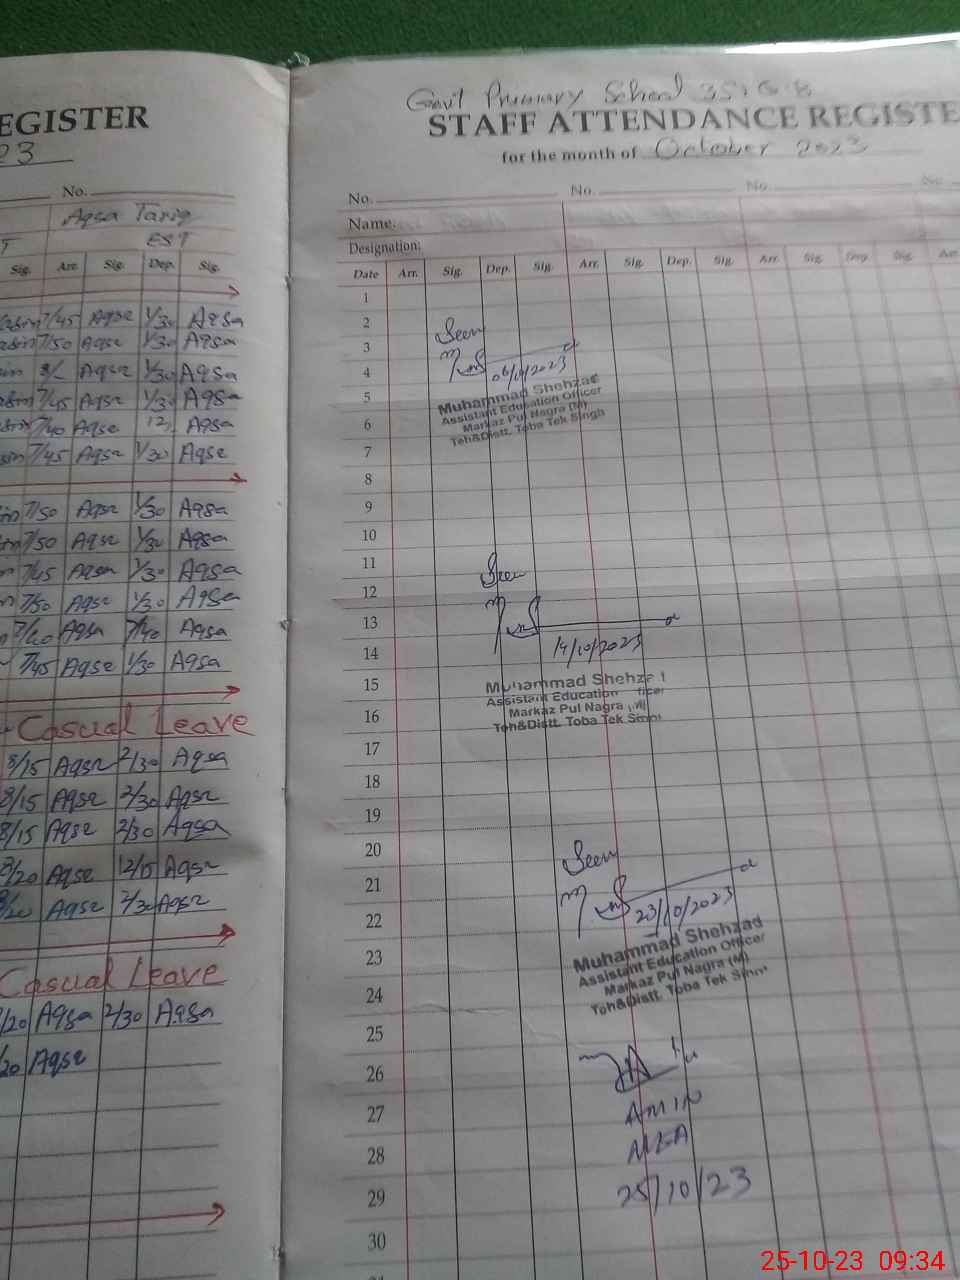 EGISTER
23
No.
Aqsa Tariq
EST
Sig. Arr. Sig. Dep. Sig.
7/45 Aqsa 1/30 Aqsa
7/50 Aqsa 1/30 Aqsa
8/- Aqsa 1/30 Aqsa
7/45 Aqsa 1/30 Aqsa
7/40 Aqsa 12/ Aqsa
7/45 Aqsa 1/30 Aqsa
7/50 Aqsa 1/30 Aqsa
7/50 Aqsa 1/30 Aqsa
7/45 Aqsa 1/30 Aqsa
7/50 Aqsa 1/30 Aqsa
Aqsa Aqsa
7/45 Aqsa 1/30 Aqsa
Casual Leave
8/15 Aqsa 2/30 Aqsa
8/15 Aqsa 2/30 Aqsa
8/15 Aqsa 2/30 Aqsa
8/20 Aqsa 12/15 Aqsa
Aqsa 2/30 Aqsa
Casual Leave
/20 Aqsa 2/30 Aqsa
/20 Aqsa
Govt Primary School
STAFF ATTENDANCE REGISTE
for the month of October 2023
No. No. No. No.
Name:
Designation:
Date Arr. Sig. Dep. Sig. Arr. Sig. Dep. Sig. Arr. Sig. Dep. Sig. Arr.
1
2
Seen
3
4
06/10/2023
5
Muhammad Shehzad
Assistant Education Officer
6
Markaz Pul Nagra (M)
Teh&Distt. Toba Tek Singh
7
8
9
10
11
Seen
12
13
14
14/10/2023
15
Muhammad Shehza
Assistant Education ficer
16
Markaz Pul Nagra (M)
Teh&Distt. Toba Tek Singh
17
18
19
20
Seen
21
22
23/10/2023
23
Muhammad Shehzad
Assistant Education Officer
24
Markaz Pul Nagra (M)
Teh&Distt. Toba Tek Singh
25
26
27
AMIN
28
MEA
29
25/10/23
30
25-10-23 09:34